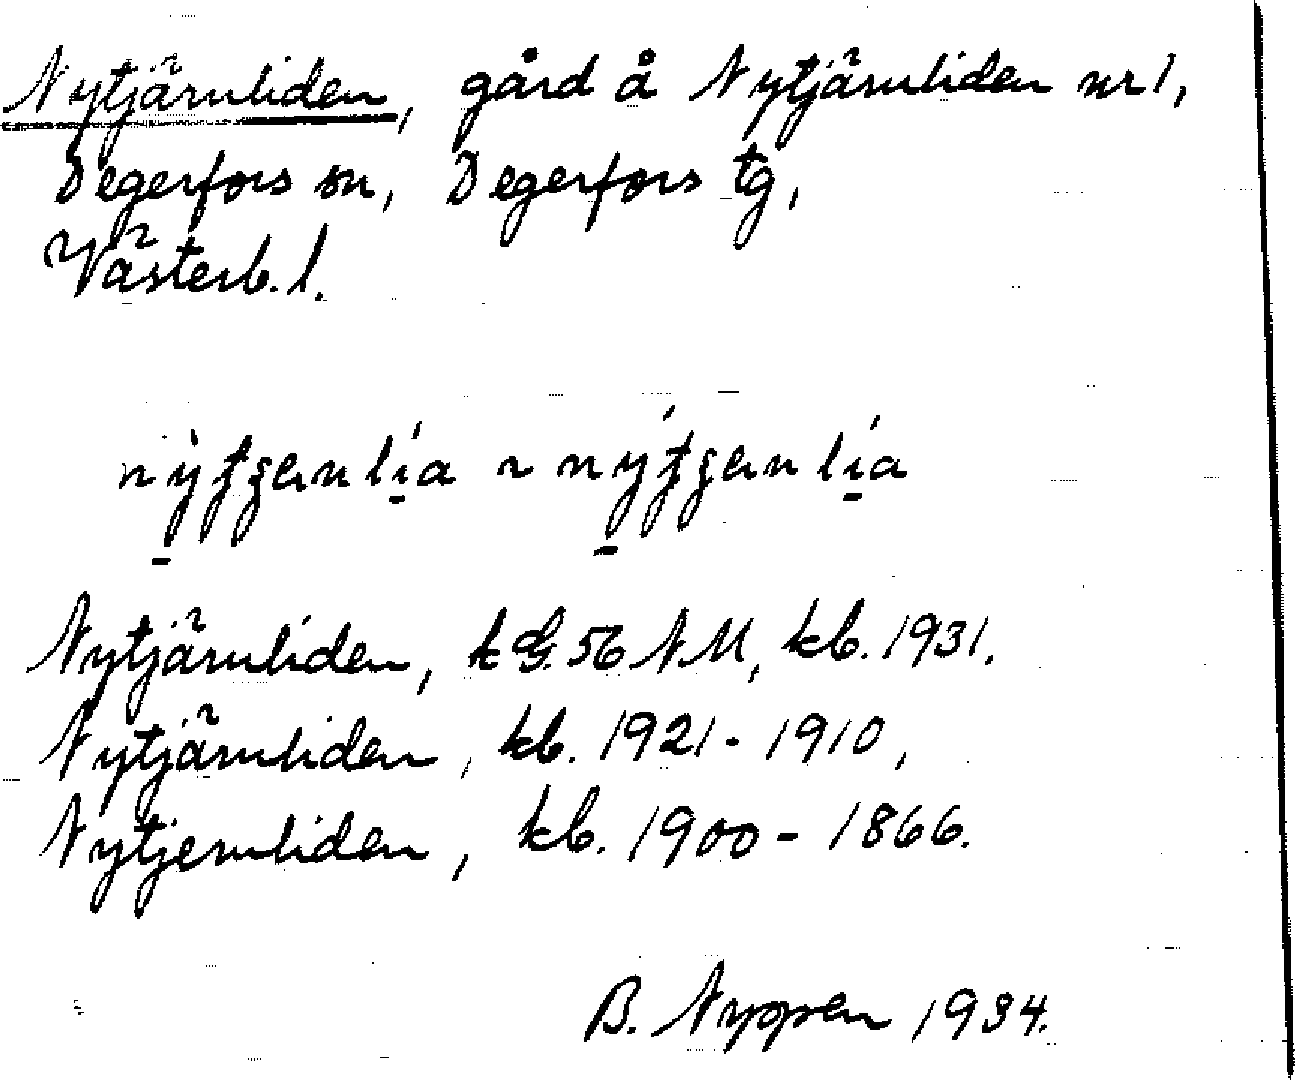 Nytjärnliden, gård å Nytjärnliden nr 1,
Degerfors sn, Degerfors tg,
Västerb. l.
Nytjärnliden, kG. 56 NM, kb. 1931.
Nytjärnliden, kb. 1921-1910,
Nytjernliden, kb. 1900-1866.
B. Nyppen 1934.